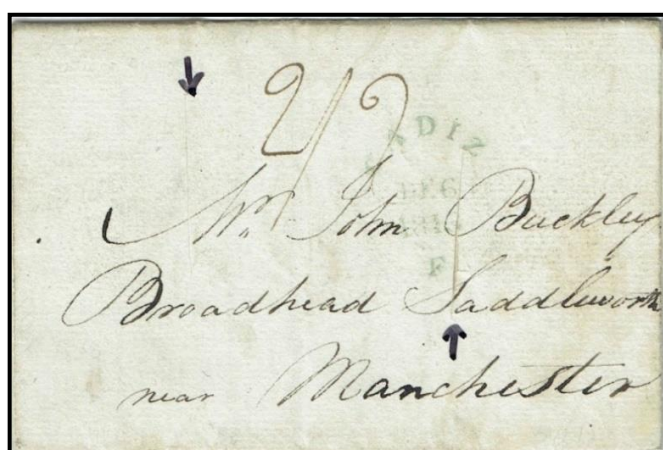 2/2
CADIZ
DE 6
F
Mr. John Buckley
Broadhead Saddleworth
near Manchester